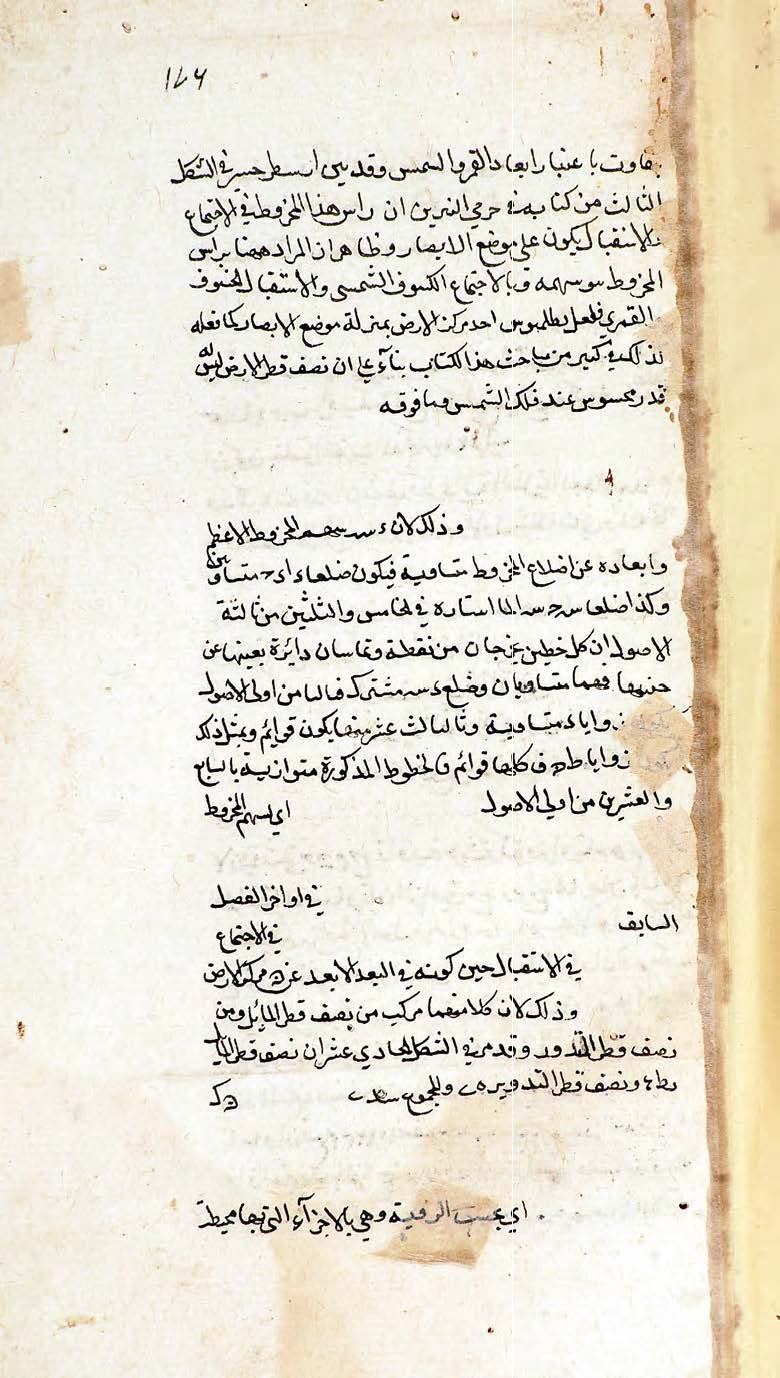 ١٤٦
باعتبار ابعاد القمر والشمس وقد بين ارسطرخس في الشكل
الثالث من كتابه في جرمي النيرين ان راس هذا المخروط في الاجتماع
والاستقبال يكون على موضع الابصار وظاهر ان المراد ههنا براس
المخروط هو سهمه وبالاجتماع الكسوف الشمسي والاستقبال الخسوف
القمري فلعل بطلميوس اخذ مركز الارض بمنزلة موضع الابصار كما فعله
لذلك في كثير من مباحث هذا الكتاب بناء على ان نصف قطر الارض ليس له
قدر محسوس عند فلك الشمس وما فوقه
وذلك لان سهم المخروط الاعظم
وابعاده عن اضلاع المخروط متساوية فيكون ضلعا متساويين
وكذا ضلعا لما استبان في الخامس والثلثين من ثالثة
الاصول ان كل خطين يخرجان من نقطة ويماسان دائرة بعينها عن
جنبيها فهما متساويان وضلع مشترك فبالثامن من اولى الاصول
زوايا متساوية وثالث عشر منها يكون قوائم وبمثل ذلك
زوايا كلها قوائم فالخطوط المذكورة متوازية بالسابع
والعشرين من اولى الاصول اي لسهم المخروط
في اواخر الفصل
السابق
في الاجتماع
في الاستقبال حين كونه في البعد الابعد عن مركز الارض
وذلك لان كلا منهما مركب من نصف قطر المائل ومن
نصف قطر التدوير وقد مر في الشكل الحادي عشر ان نصف قطر المائل
ونصف قطر التدوير والمجموع
اي بحسب الرؤية وهي بالاجزآء التي بها محيط